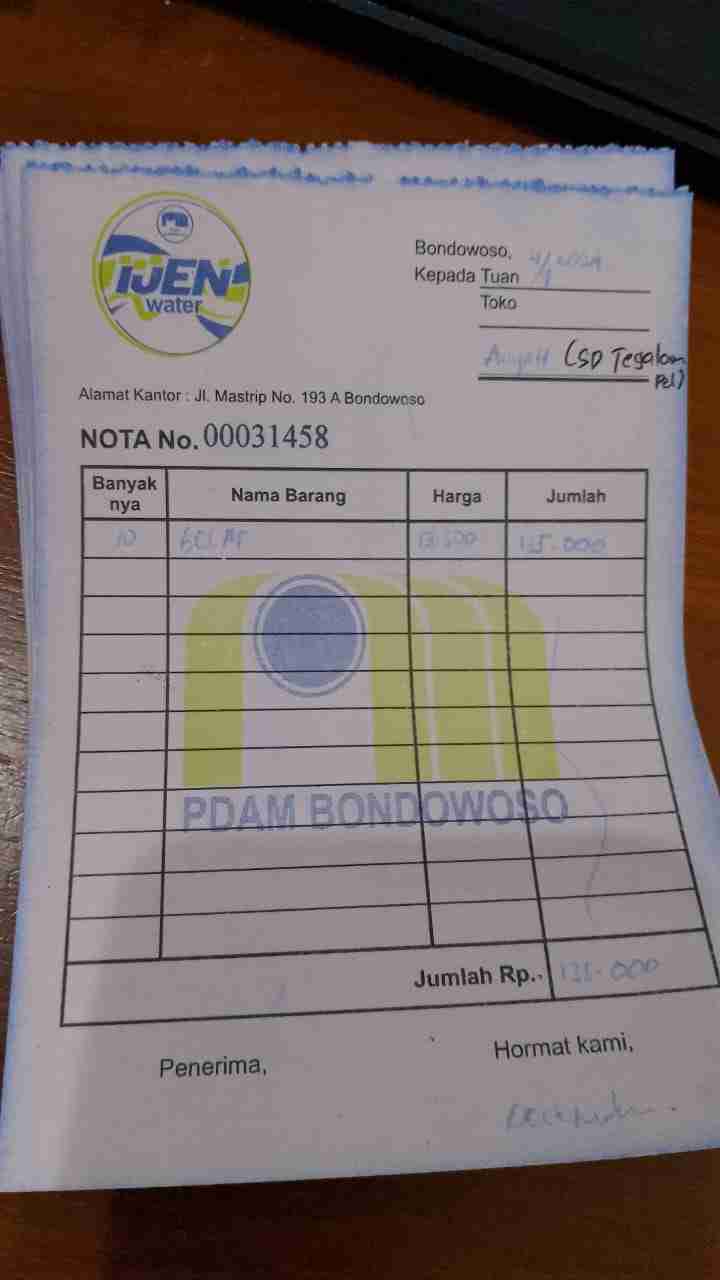 IJEN
water
Bondowoso, 4/1 2024
Kepada Tuan
Toko
(SD Tegalam
pel)
Alamat Kantor : Jl. Mastrip No. 193 A Bondowoso
NOTA No. 00031458
Banyak nya Nama Barang Harga Jumlah
10 GELAS 13.500 135.000
PDAM BONDOWOSO
Jumlah Rp. 135.000
Penerima,
Hormat kami,